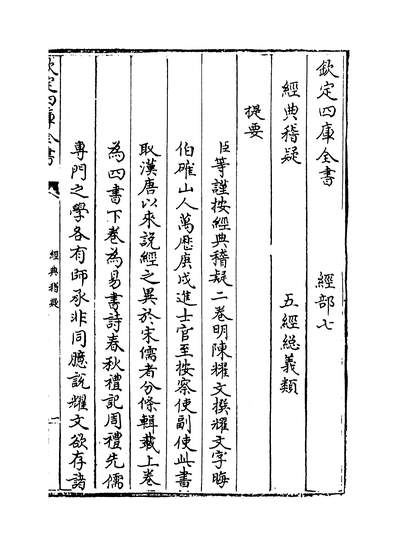 欽定四庫全書　經部七
經典稽疑　五經總義類
提要
臣等謹按經典稽疑二卷明陳耀文撰耀文字晦
伯確山人萬歷庚戍進士官至按察使副使此書
取漢唐以來說經之異於宋儒者分條輯載上卷
為四書下卷為易書詩春秋禮記周禮先儒
專門之學各有師承非同臆說耀文欲存諸
欽定四庫全書
經典稽疑
一